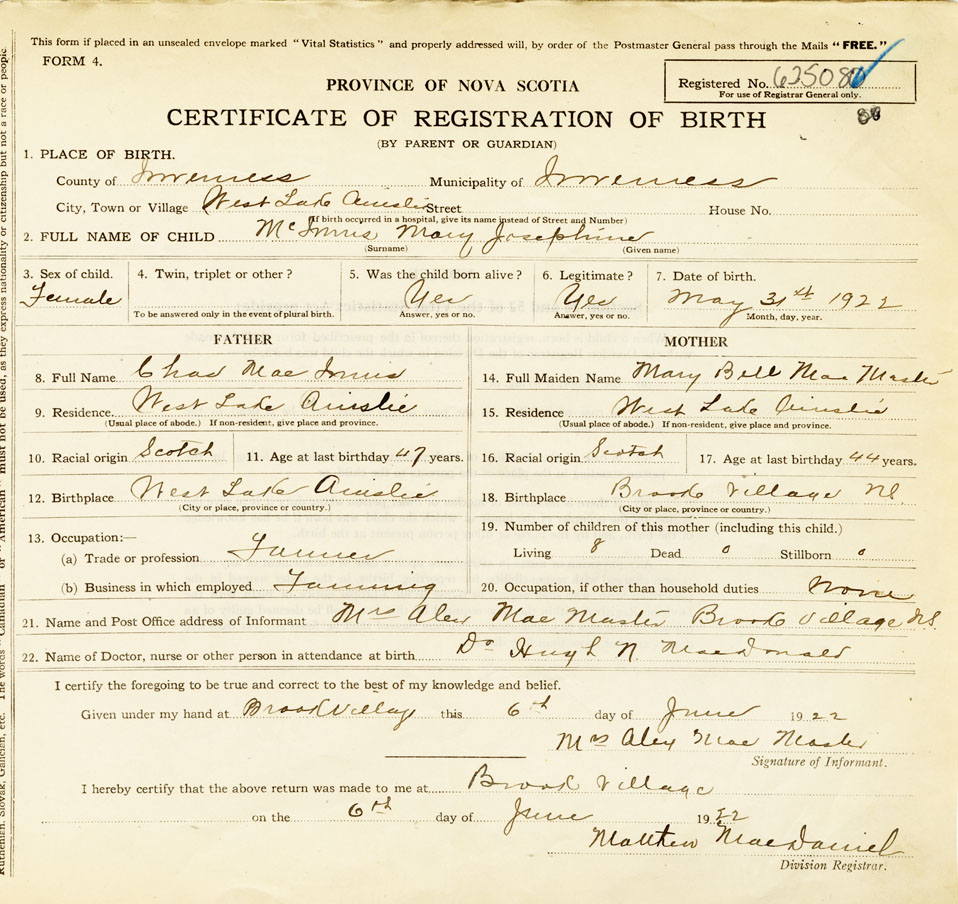 This form if placed in an unsealed envelope marked "Vital Statistics" and properly addressed will, by order of the Postmaster General pass through the Mails "FREE."
FORM 4.
Registered No. 625080
For use of Registrar General only.
80
PROVINCE OF NOVA SCOTIA
CERTIFICATE OF REGISTRATION OF BIRTH
(BY PARENT OR GUARDIAN)
1. PLACE OF BIRTH.
County of Inverness Municipality of Inverness
City, Town or Village West Lake Ainslie Street House No.
(If birth occurred in a hospital, give its name instead of Street and Number)
2. FULL NAME OF CHILD McInnis Mary Josephine
(Surname) (Given name)
3. Sex of child. 4. Twin, triplet or other? 5. Was the child born alive? 6. Legitimate? 7. Date of birth.
Female Yes Yes May 31st 1922
To be answered only in the event of plural birth. Answer, yes or no. Answer, yes or no. Month, day, year.
FATHER
8. Full Name Chas Mac Innis
9. Residence West Lake Ainslie
(Usual place of abode.) If non-resident, give place and province.
10. Racial origin Scotch 11. Age at last birthday 47 years.
12. Birthplace West Lake Ainslie
(City or place, province or country.)
13. Occupation:—
(a) Trade or profession Farmer
(b) Business in which employed Farming
MOTHER
14. Full Maiden Name Mary Bell Mac Master
15. Residence West Lake Ainslie
(Usual place of abode.) If non-resident, give place and province.
16. Racial origin Scotch 17. Age at last birthday 44 years.
18. Birthplace Brook Village NS
(City or place, province or country.)
19. Number of children of this mother (including this child.)
Living 8 Dead 0 Stillborn 0
20. Occupation, if other than household duties None
21. Name and Post Office address of Informant Mrs Alex Mac Master Brook Village N.S.
22. Name of Doctor, nurse or other person in attendance at birth Dr Hugh N. MacDonald
I certify the foregoing to be true and correct to the best of my knowledge and belief.
Given under my hand at Brook Village this 6th day of June 1922
Mrs Alex Mac Master
Signature of Informant.
I hereby certify that the above return was made to me at Brook Village
on the 6th day of June 1922
Matthew MacDaniel
Division Registrar.
Ruthenian, Slovak, Galician, etc. The words "Canadian" or "American" must not be used, as they express nationality or citizenship but not a race or people.